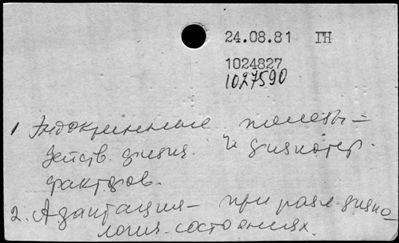 24.08.81 ГН
1024827
1027590
1 Эндокринные железы –
действ. физич. и физиотер.
факторов.
2. Адаптация – при разл. физио-
логич. состояниях.